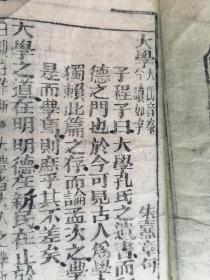 大學 大舊音泰今讀如字
朱熹章句
子程子曰大學孔氏之遺書而
德之門也於今可見古人爲學
獨賴此篇之存而論孟次之學
是而學焉則庶乎其不差矣
大學之道在明明德在新民在止於